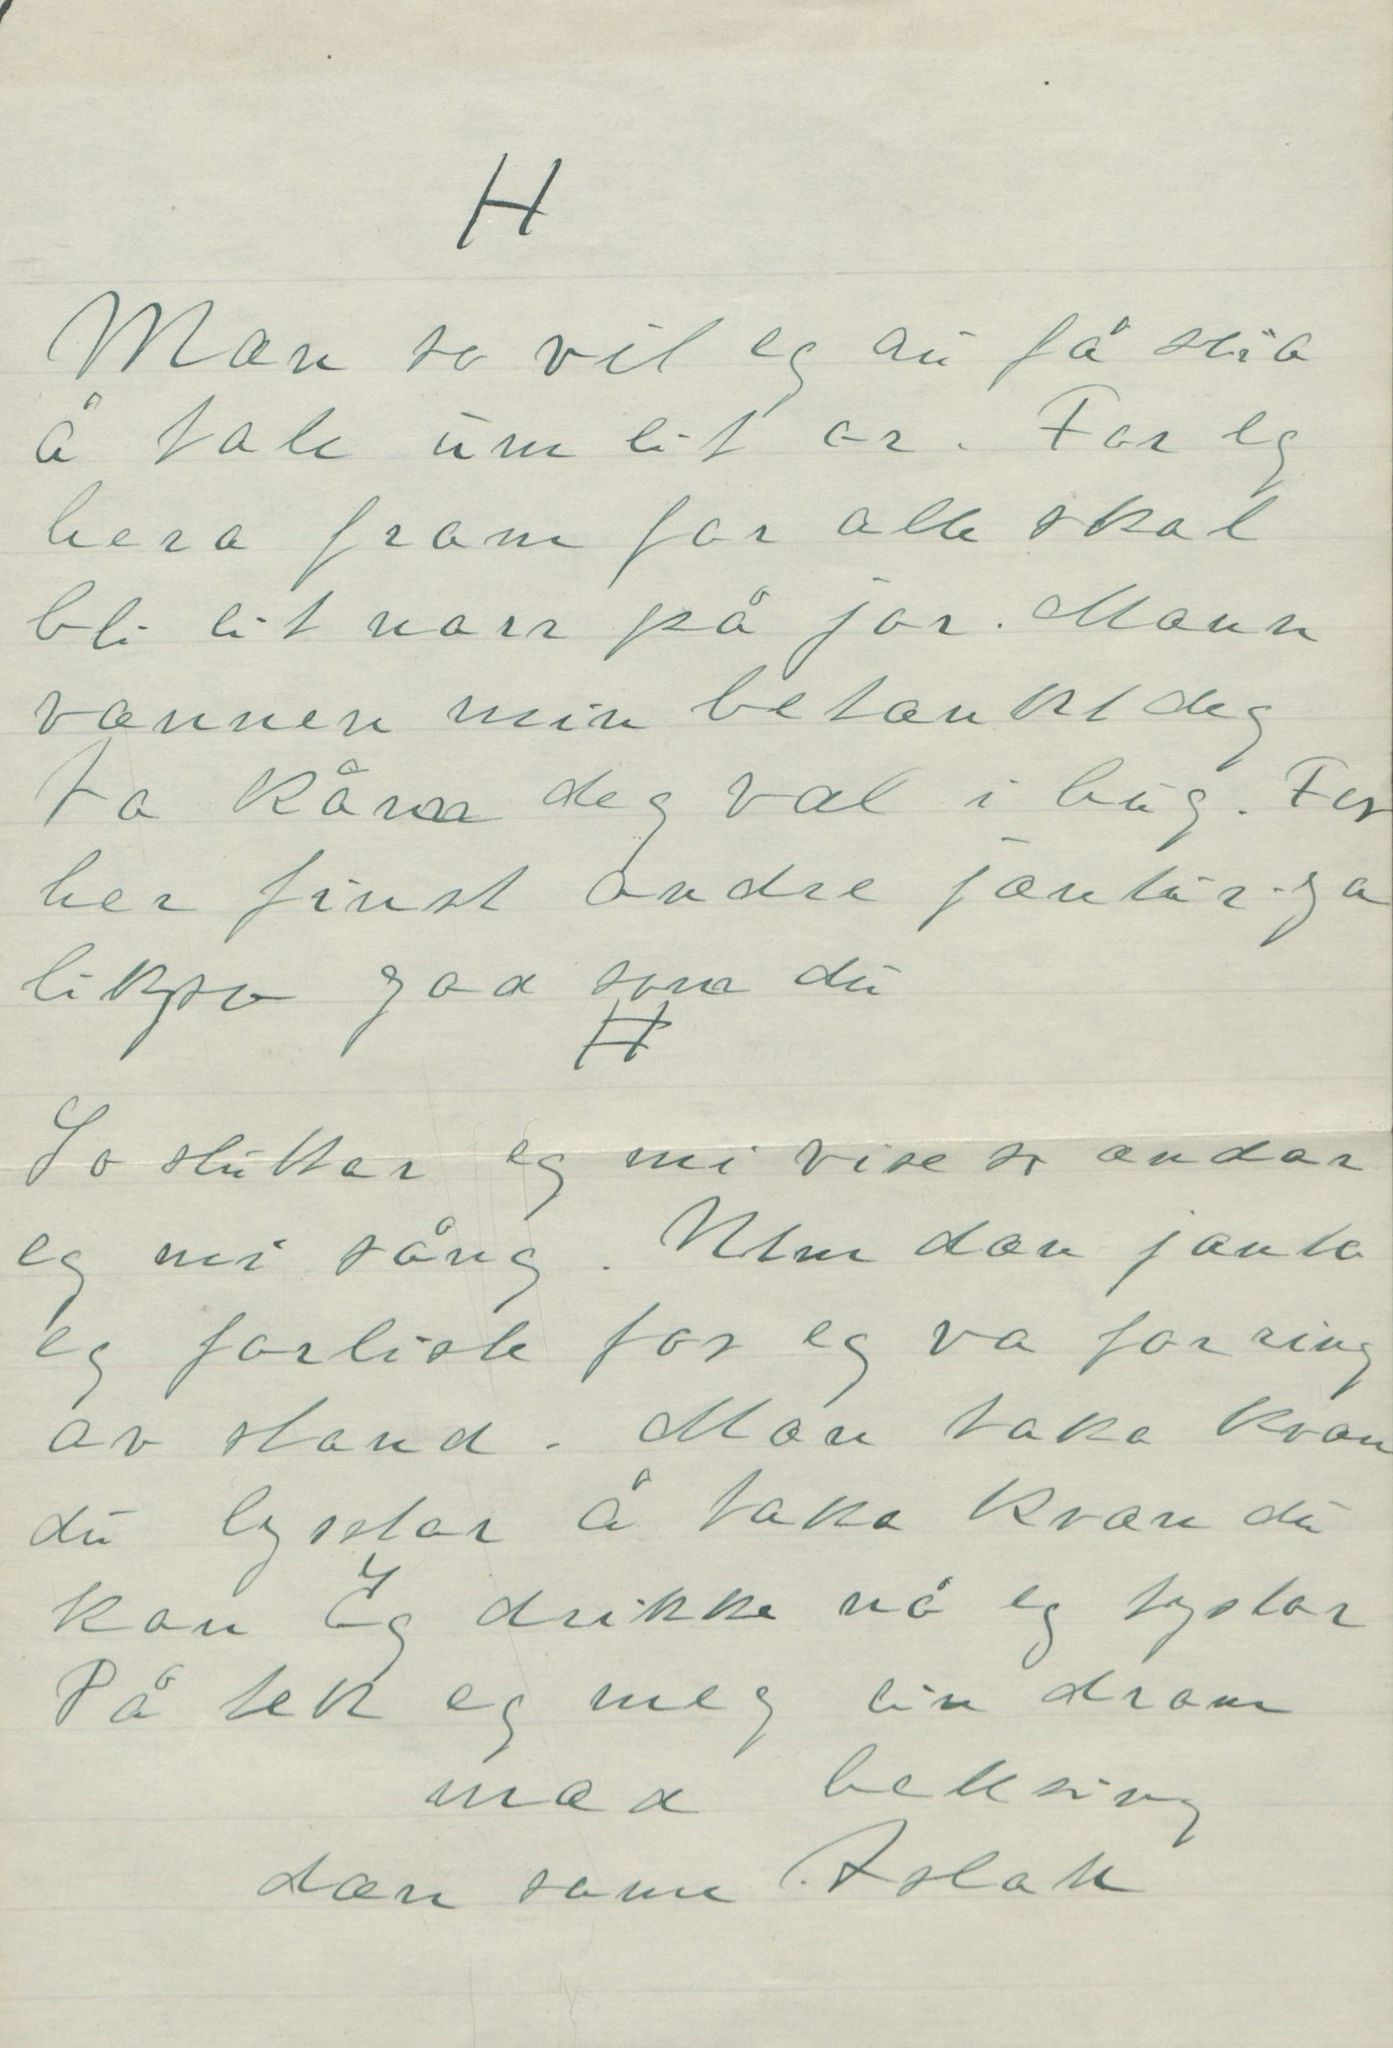 H
Mæn so vil eg nu få stia
å tale um lit or. For eg
hera fram for alle skal
bli lit narr på jor. Mænn
vænnen min betænkt deg
ta kåmm deg væl i hug. For
her finst andre jæntur ga
likso god som du
H
So sluttar eg mi vise so ændar
eg mi sång. Um dæn jænta
eg forliste for eg va for ring
av stand. Mæn taka kvæn
du lystar å taka kvæn du
kan Eg drikke nå eg tystar
På tek eg meg ein dram
mæd helsing
dæn same Aslak